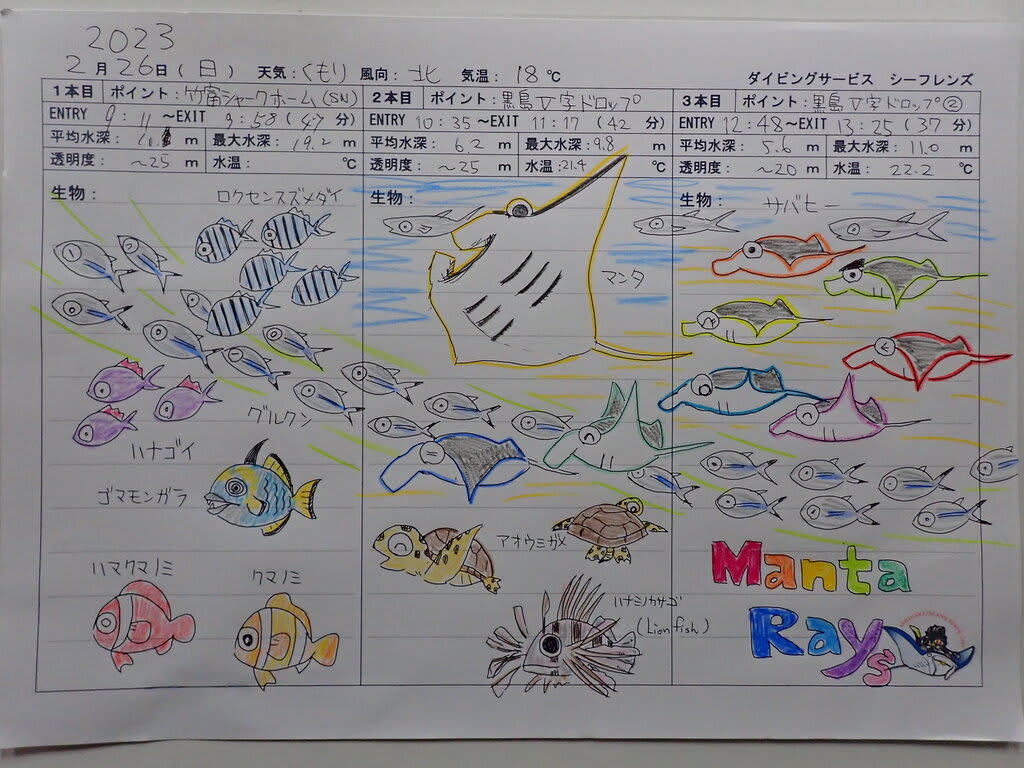 2023
2月26日(日) 天気:くもり 風向:北 気温:18℃
ダイビングサービス シーフレンズ
1本目 ポイント:竹富シャークホーム(SN)
ENTRY 9:11 ~EXIT 9:58 (47分)
平均水深: m 最大水深:19.2 m
透明度: ~25 m 水温: ℃
生物:
ロクセンスズメダイ
グルクン
ハナゴイ
ゴマモンガラ
ハマクマノミ
クマノミ
2本目 ポイント:黒島V字ドロップ
ENTRY 10:35 ~EXIT 11:17 (42分)
平均水深: 6.2 m 最大水深:9.8 m
透明度: ~25 m 水温:21.4 ℃
生物:
マンタ
アオウミガメ
ハナミノカサゴ
(Lion fish)
3本目 ポイント:黒島V字ドロップ②
ENTRY 12:48 ~EXIT 13:25 (37分)
平均水深: 5.6 m 最大水深: 11.0 m
透明度: ~20 m 水温: 22.2 ℃
生物:
サバヒー
Manta
Rays